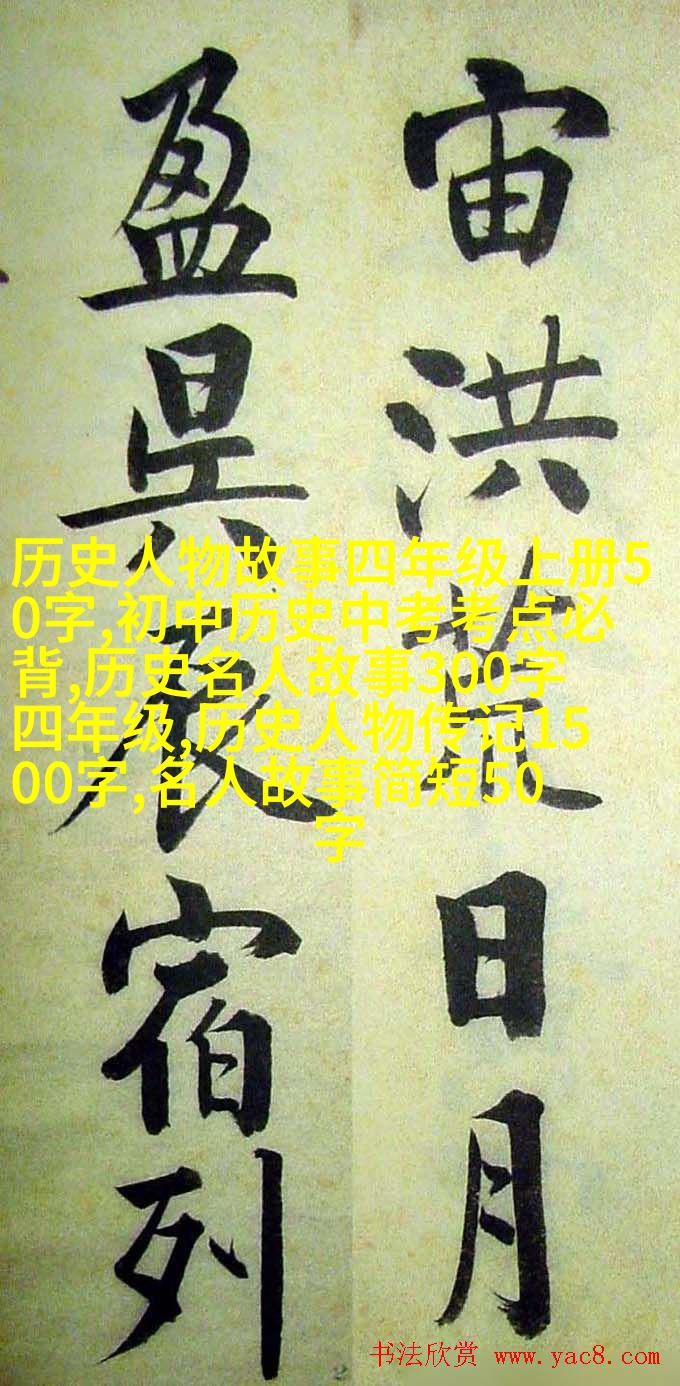 宙洪荒日月
盈昃辰宿列
历史人物故事四年级上册5
0字,初中历史中考考点必
背,历史名人故事300字
四年级,历史人物传记15
00字,名人故事简短50
字
书法欣赏 www.yac8.com